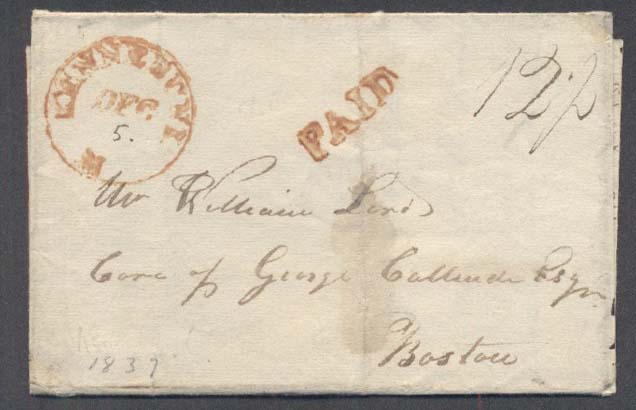 KENNEBUNK
M
DEC
5.
PAID
12½
Mr William Lord
Care of George Callender Esqr
Boston
1839